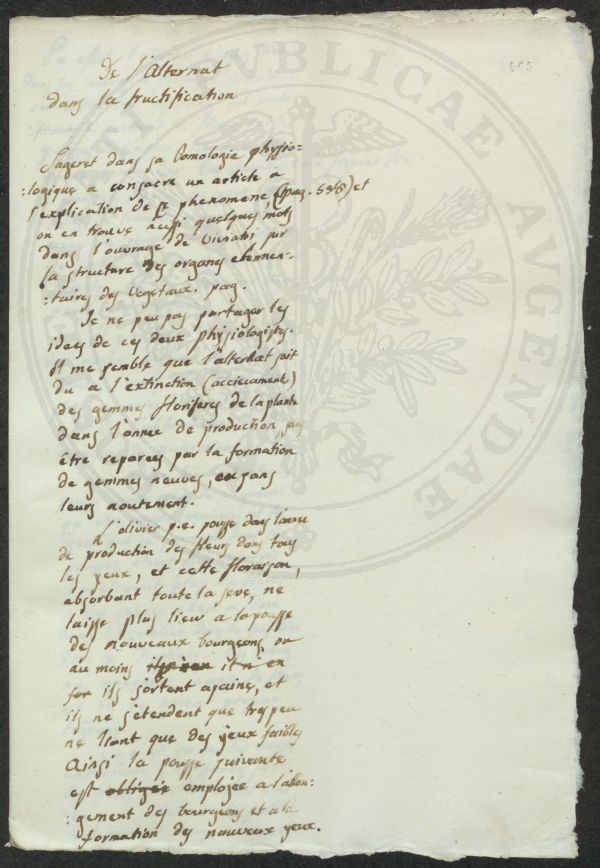 De l'Alternat
dans la fructification
Sageret dans sa Pomologie physio=
:logique a consacre un article a
l'explication de ce phenomene, (pag. 538) et
on en trouve aussi quelques mots
dans l'ouvrage de Viviani sur
la structure des organes elemen-
:taires des vegetaux. pag.
Je ne peu pas partager les
idees de ces deux physiologistes.
Il me semble que l'alternat soit
du a l'extinction (acciecament)
des gemmes floriferes de la plante
dans l'année de production, sans
être reparees par la formation
de gemmes neuves, ou sans
leurs aoutement.
L'olivier p.e. pousse dans l'annee
de production des fleurs dans tous
les yeux, et cette floraison,
absorbant toute la seve, ne
laisse plus lieu a la pousse
des nouveaux bourgeons, ou
au moins il n'en
ils sortent apaine, et
ils ne s'etendent que tres peu
ne
que des yeux faibles
Ainsi la pousse suivante
est obligée employee a l'allon:
:gement des bourgeons et a la
formation des nouveux yeux.
PVBLICAE
AVGENDAE